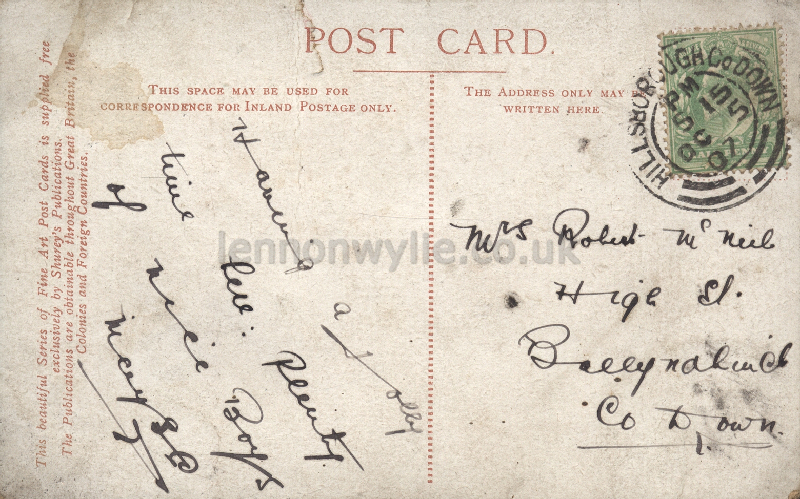 POST CARD.
THIS SPACE MAY BE USED FOR
CORRESPONDENCE FOR INLAND POSTAGE ONLY.
THE ADDRESS ONLY MAY
WRITTEN HERE.
This beautiful Series of Fine Art Post Cards is supplied free
exclusively by Shurey's Publications.
The Publications are obtainable throughout Great Britain, the
Colonies and Foreign Countries.
HILLSBOROUGH Co DOWN
PM
5 15
07
Having a Jolly
time
Plenty
of nice Boys
Mrs Robert McNeil
High St.
Ballynahinch
Co Down.
lennonwylie.co.uk